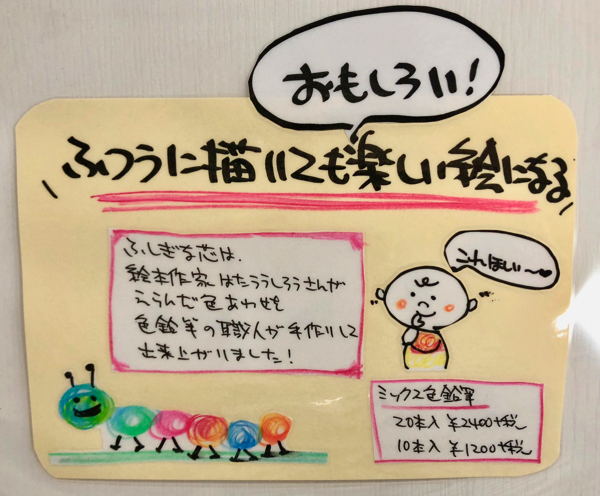 おもしろい!
ふつうに描いても楽しい絵になる
ふしぎな芯は、
絵本作家はたこうしろうさんが
えらんだ色あわせを
色鉛筆の職人が手作りして
出来上がりました!
これほしい〜♡
ミックス色鉛筆
20本入 ¥2400+税
10本入 ¥1200+税